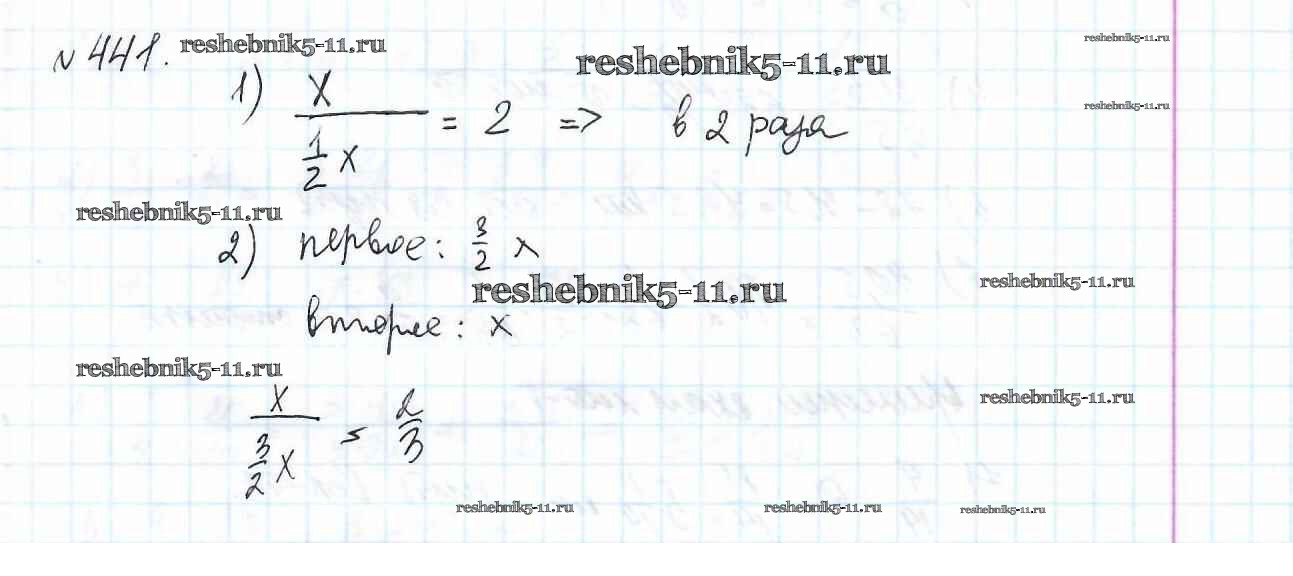 № 441. reshebnik5-11.ru reshebnik5-11.ru reshebnik5-11.ru
1) x / (1/2 x) = 2 => в 2 раза reshebnik5-11.ru
reshebnik5-11.ru
2) первое: 3/2 x
reshebnik5-11.ru reshebnik5-11.ru
второе: x
reshebnik5-11.ru
x / (3/2 x) = 2/3 reshebnik5-11.ru
reshebnik5-11.ru reshebnik5-11.ru reshebnik5-11.ru